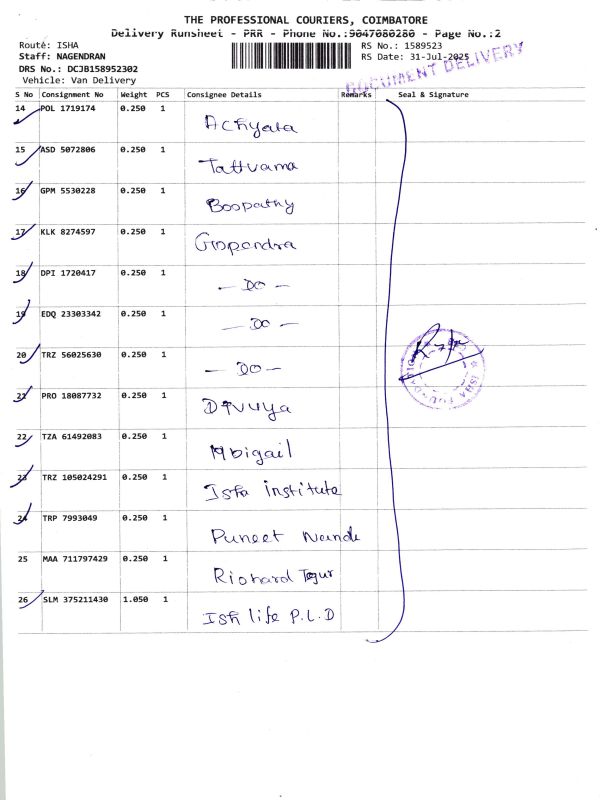 THE PROFESSIONAL COURIERS, COIMBATORE
Delivery Runsheet - PRR - Phone No.:9047080280 - Page No.:2
Route: ISHA
RS No.: 1589523
Staff: NAGENDRAN
RS Date: 31-Jul-2025
DOCUMENT DELIVERY
DRS No.: DCJB158952302
Vehicle: Van Delivery
S No Consignment No Weight PCS Consignee Details Remarks Seal & Signature
14 POL 1719174 0.250 1
Achyata
15 ASD 5072806 0.250 1
Tattvama
16 GPM 5530228 0.250 1
Boopathy
17 KLK 8274597 0.250 1
Gopendra
18 DPI 1720417 0.250 1
— DO —
19 EDQ 23303342 0.250 1
— DO —
20 TRZ 56025630 0.250 1
— DO —
21 PRO 18087732 0.250 1
22 TZA 61492083 0.250 1
Abigail
23 TRZ 105024291 0.250 1
Isha institute
24 TRP 7993049 0.250 1
Puneet
25 MAA 711797429 0.250 1
Richard
26 SLM 375211430 1.050 1
Ish life P.L.D
ISHA FOUNDATION